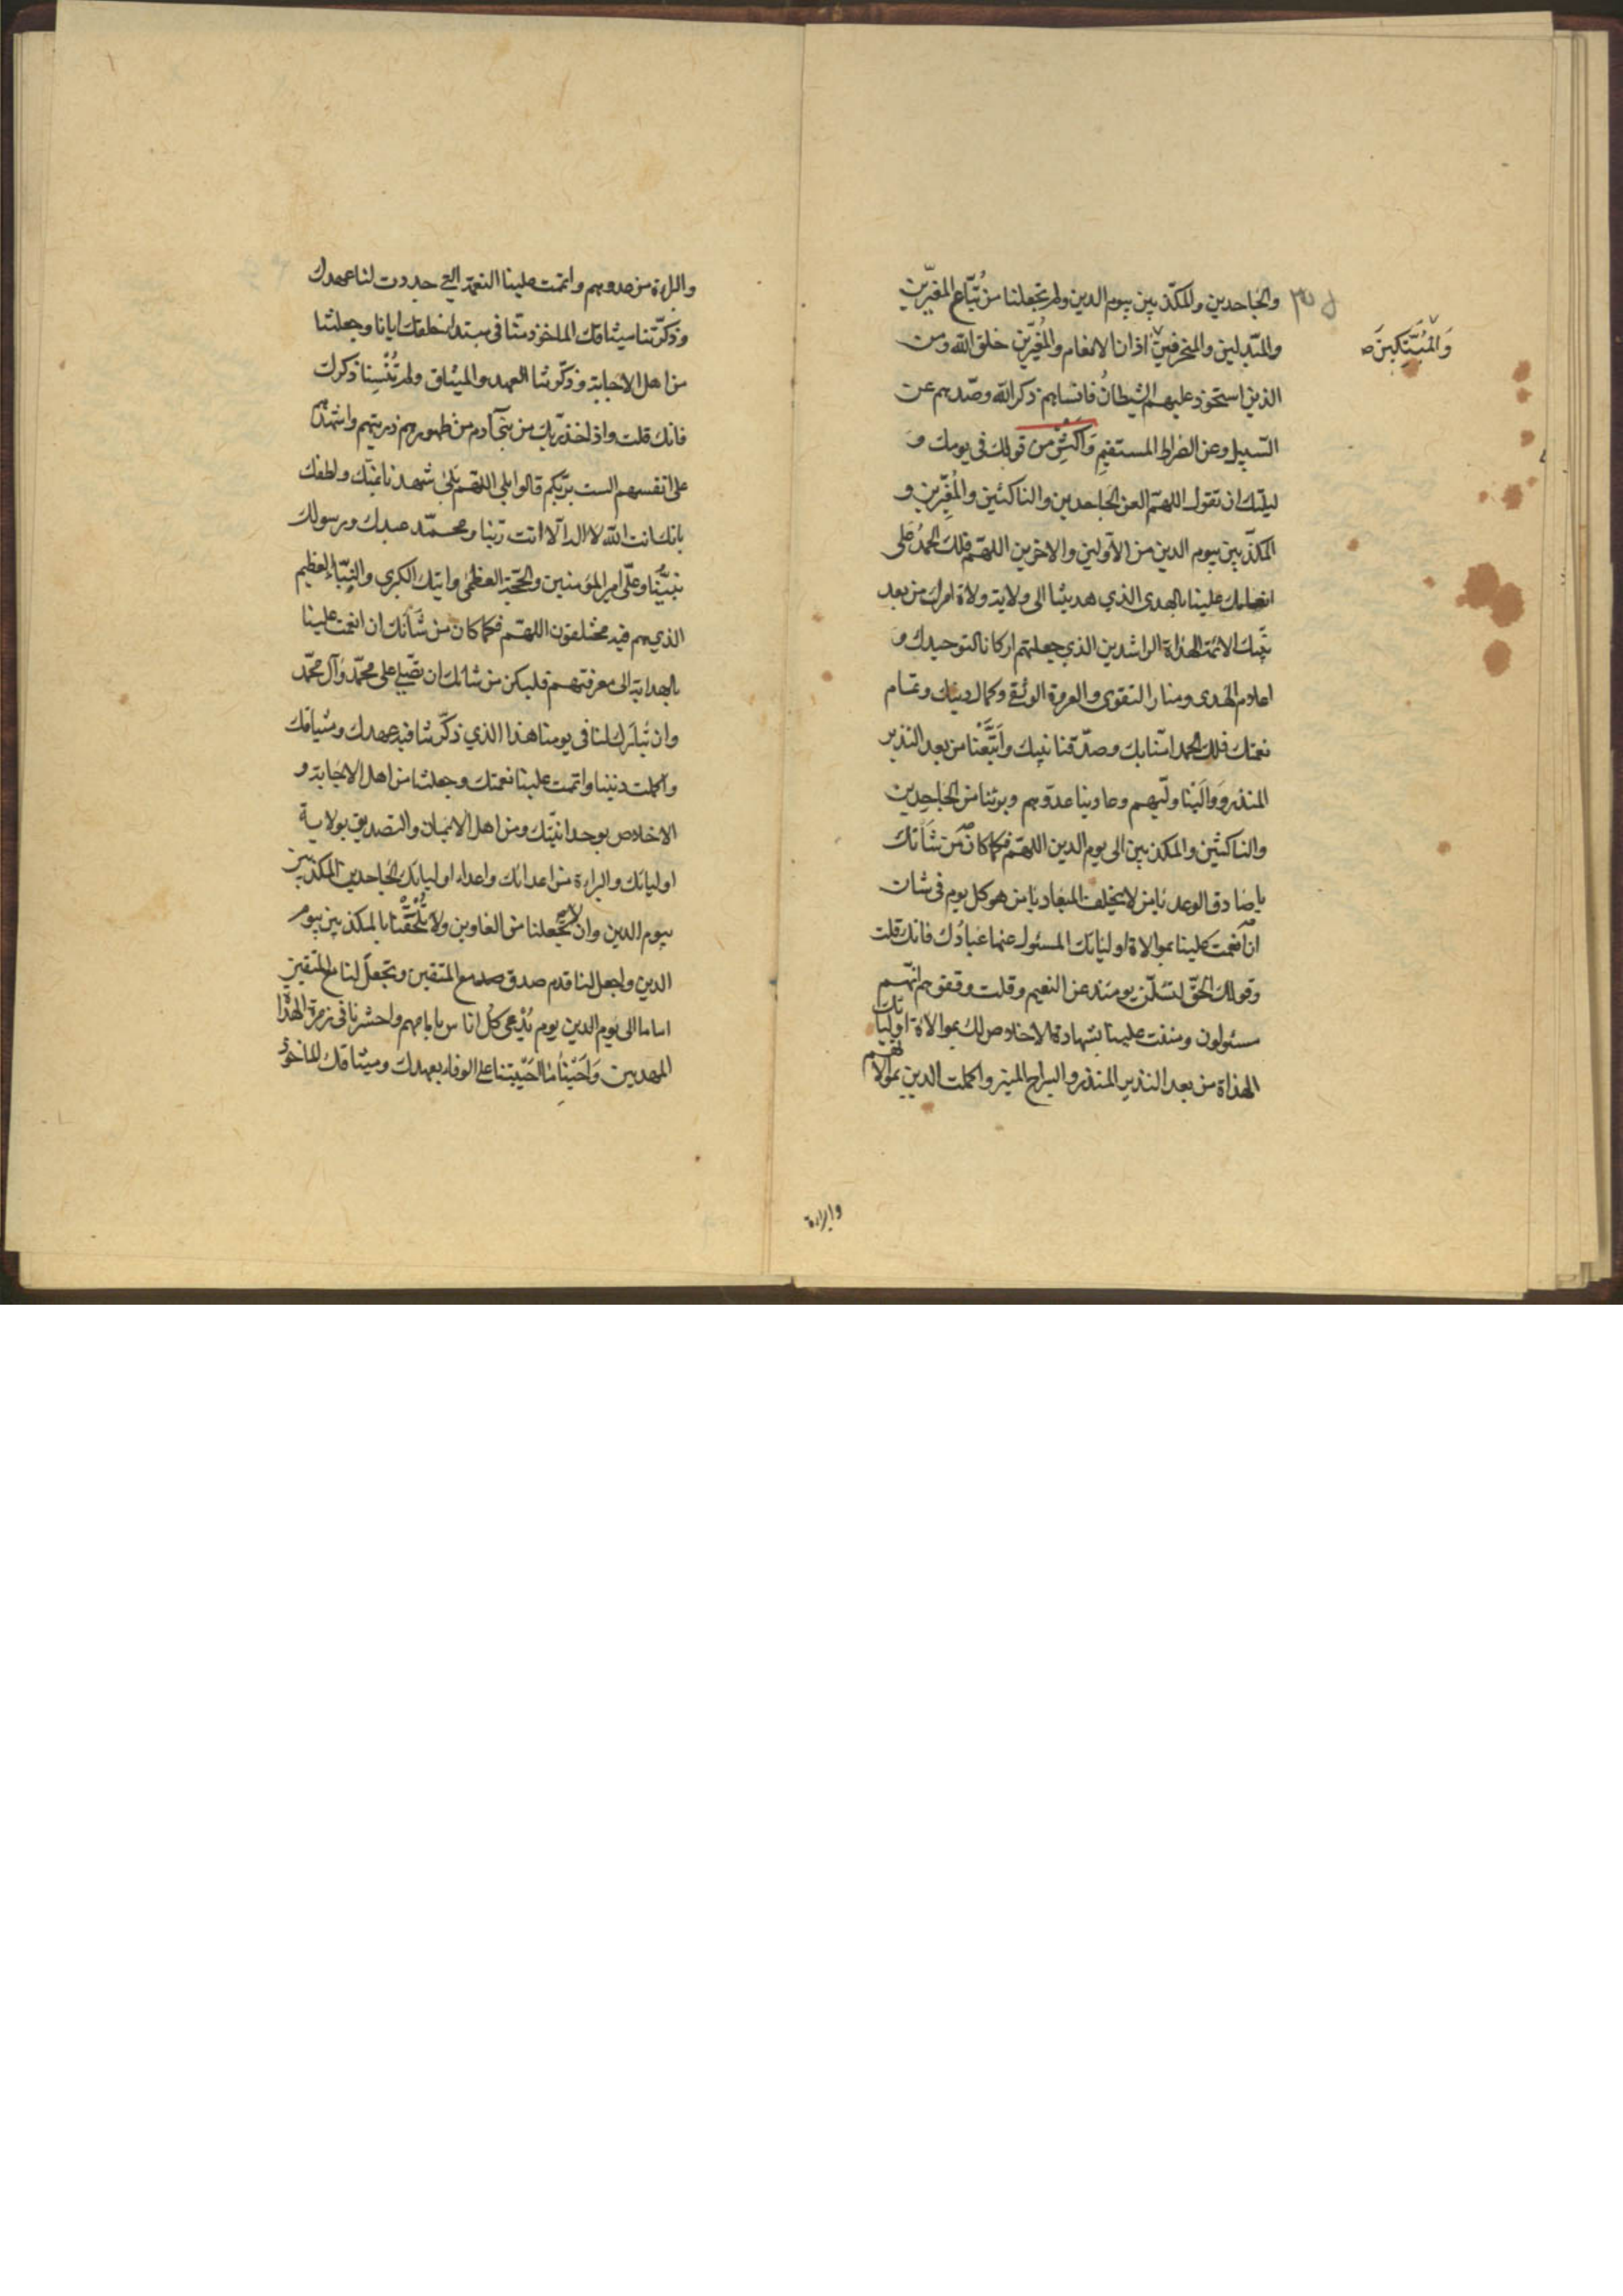 والجاحدين والمكذّبين بيوم الدين ولم تجعلنا من تُبّاع المغيّرين
والمبدّلين والمنحرفين اذان الانعام والمُغيّرين خلق الله ومن
والمُبَتِّكينَ صح
الذين استحوذ عليهم الشيطانُ فانساهم ذكر الله وصدّهم عن
السّبيل وعن الصّراط المستقيم وَاكثِر من قولك في يومك و
ليلتك ان تقول اللهمّ العن الجاحدين والناكثين والمُغيّرين و
المكذّبين بيوم الدين من الاوّلين والاخرين اللهمّ فلك الحمدُ على
انعامك علينا بالهدى الذي هديتنا الى ولاية ولاة امرك من بعد
نبيّك الائمة الهداة الراشدين الذي جعلتهم اركانا لتوحيدك و
اعلام الهدى ومنار التقوى والعروة الوثقى وكمال دينك وتمام
نعمتك فلك الحمد امنّا بك وصدّقنا نبيك واتّبعْنا من بعد النذير
المنذر وَوالَيْنا وليّهم وعادينا عدوّهم وبرئنا من الجاحِدين
والناكثين والمكذبين الى يوم الدين اللهمّ فكما كان من شَأنك
يا صادق الوعد يا من لا يخلف الميعاد يا من هو كل يوم في شان
ان اتممت علينا بموالاة اوليائك المسئول عنها عبادُك فانك قلت
وقولك الحقّ لتسئلنّ يومئذ عن النعيم وقلت وقفوهم انّهم
مسئولون ومننت علينا بشهادة الاخلاص لك بموالاة اوليائك
الهداة من بعد النذير المنذر والسراج المنير واكملت الدين بموالاتهم
والبراءة
والبراءة من عدوهم واتممت علينا النعمة التي جددت لنا عهدك
وذكّرتنا ميثاقك الماخوذ منّا في مبتدا خلقك ايانا وجعلتنا
من اهل الاجابة وذكّرتنا العهد والميثاق ولم تُنْسِنا ذكرك
فانك قلت واذ اخذ ربك من بني آدم من ظهورهم ذريتهم واشهدهم
على انفسهم الست بربّكم قالوا بلى اللهمّ بلى شهدنا بمنّك ولطفك
بانك انت الله لا اله الّا انت ربّنا ومحمّد عبدك ورسولك
نبيّنا وعليّ امير المؤمنين والحجّة العظمى وايتك الكبرى والنبإ العظيم
الذي هم فيه مختلفون اللهمّ فكما كان من شَأنك ان انعمت علينا
بالهداية الى معرفتهم فليكن من شانك ان تصلّي على محمّد وآل محمّد
وان تُبارك لنا في يومنا هذا الذي ذكّرتنا فيه عهدك وميثاقك
واكملت ديننا واتممت علينا نعمتك وجعلتنا من اهل الاجابة و
الاخلاص بوحدانيّتك ومن اهل الايمان والتصديق بولاية
اوليائك والبراءة من اعدائك واعداء اوليائك الجاحدين المكذبين
بيوم الدين وان لا تجعلنا من الغاوين ولا تُلْحِقْنا بالمكذبين بيوم
الدين واجعل لنا قدم صدق مع المتقين وتجعل لنا مع المتقين
اماما الى يوم الدين يوم يُدْعى كلّ اناس بامامهم واحشرنا في زمرة الهداة
المهديين وَاَحْيِنا ما احيَيتنا على الوفاء بعهدك وميثاقك الماخوذ